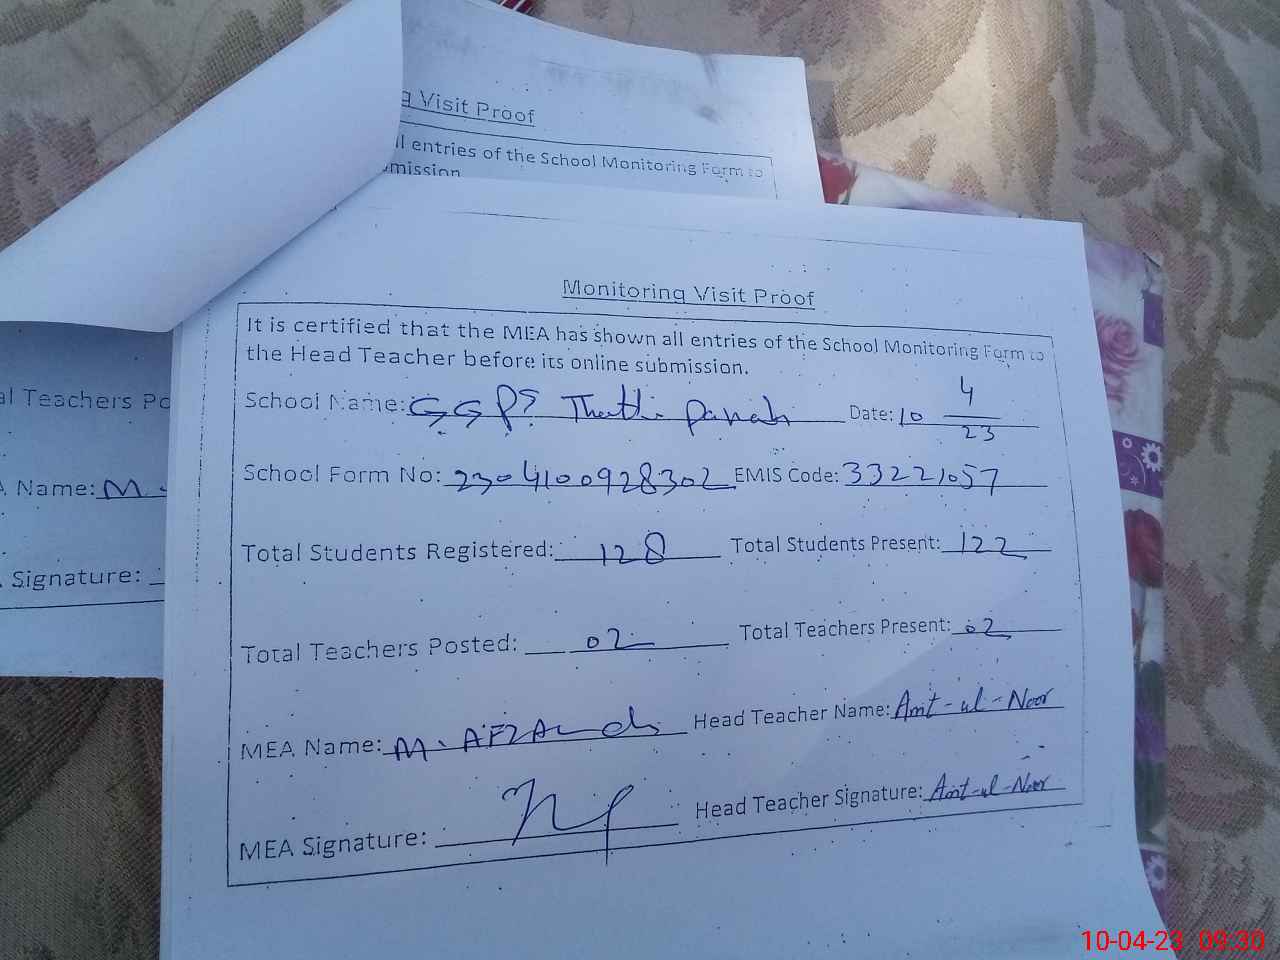 g Visit Proof
ll entries of the School Monitoring Form to
mission
al Teachers Po
Name: M.
Signature:
Monitoring Visit Proof
It is certified that the MEA has shown all entries of the School Monitoring Form to
the Head Teacher before its online submission.
School Name: GGPS Thatti Panah Date: 10 4/23
School Form No: 2304100928302 EMIS Code: 33221057
Total Students Registered: 128 Total Students Present: 122
Total Teachers Posted: 02 Total Teachers Present: 02
MEA Name: M. AFZAL Head Teacher Name: Amt-ul-Noor
MEA Signature: Head Teacher Signature: Amt-ul-Noor
10-04-23 09:30